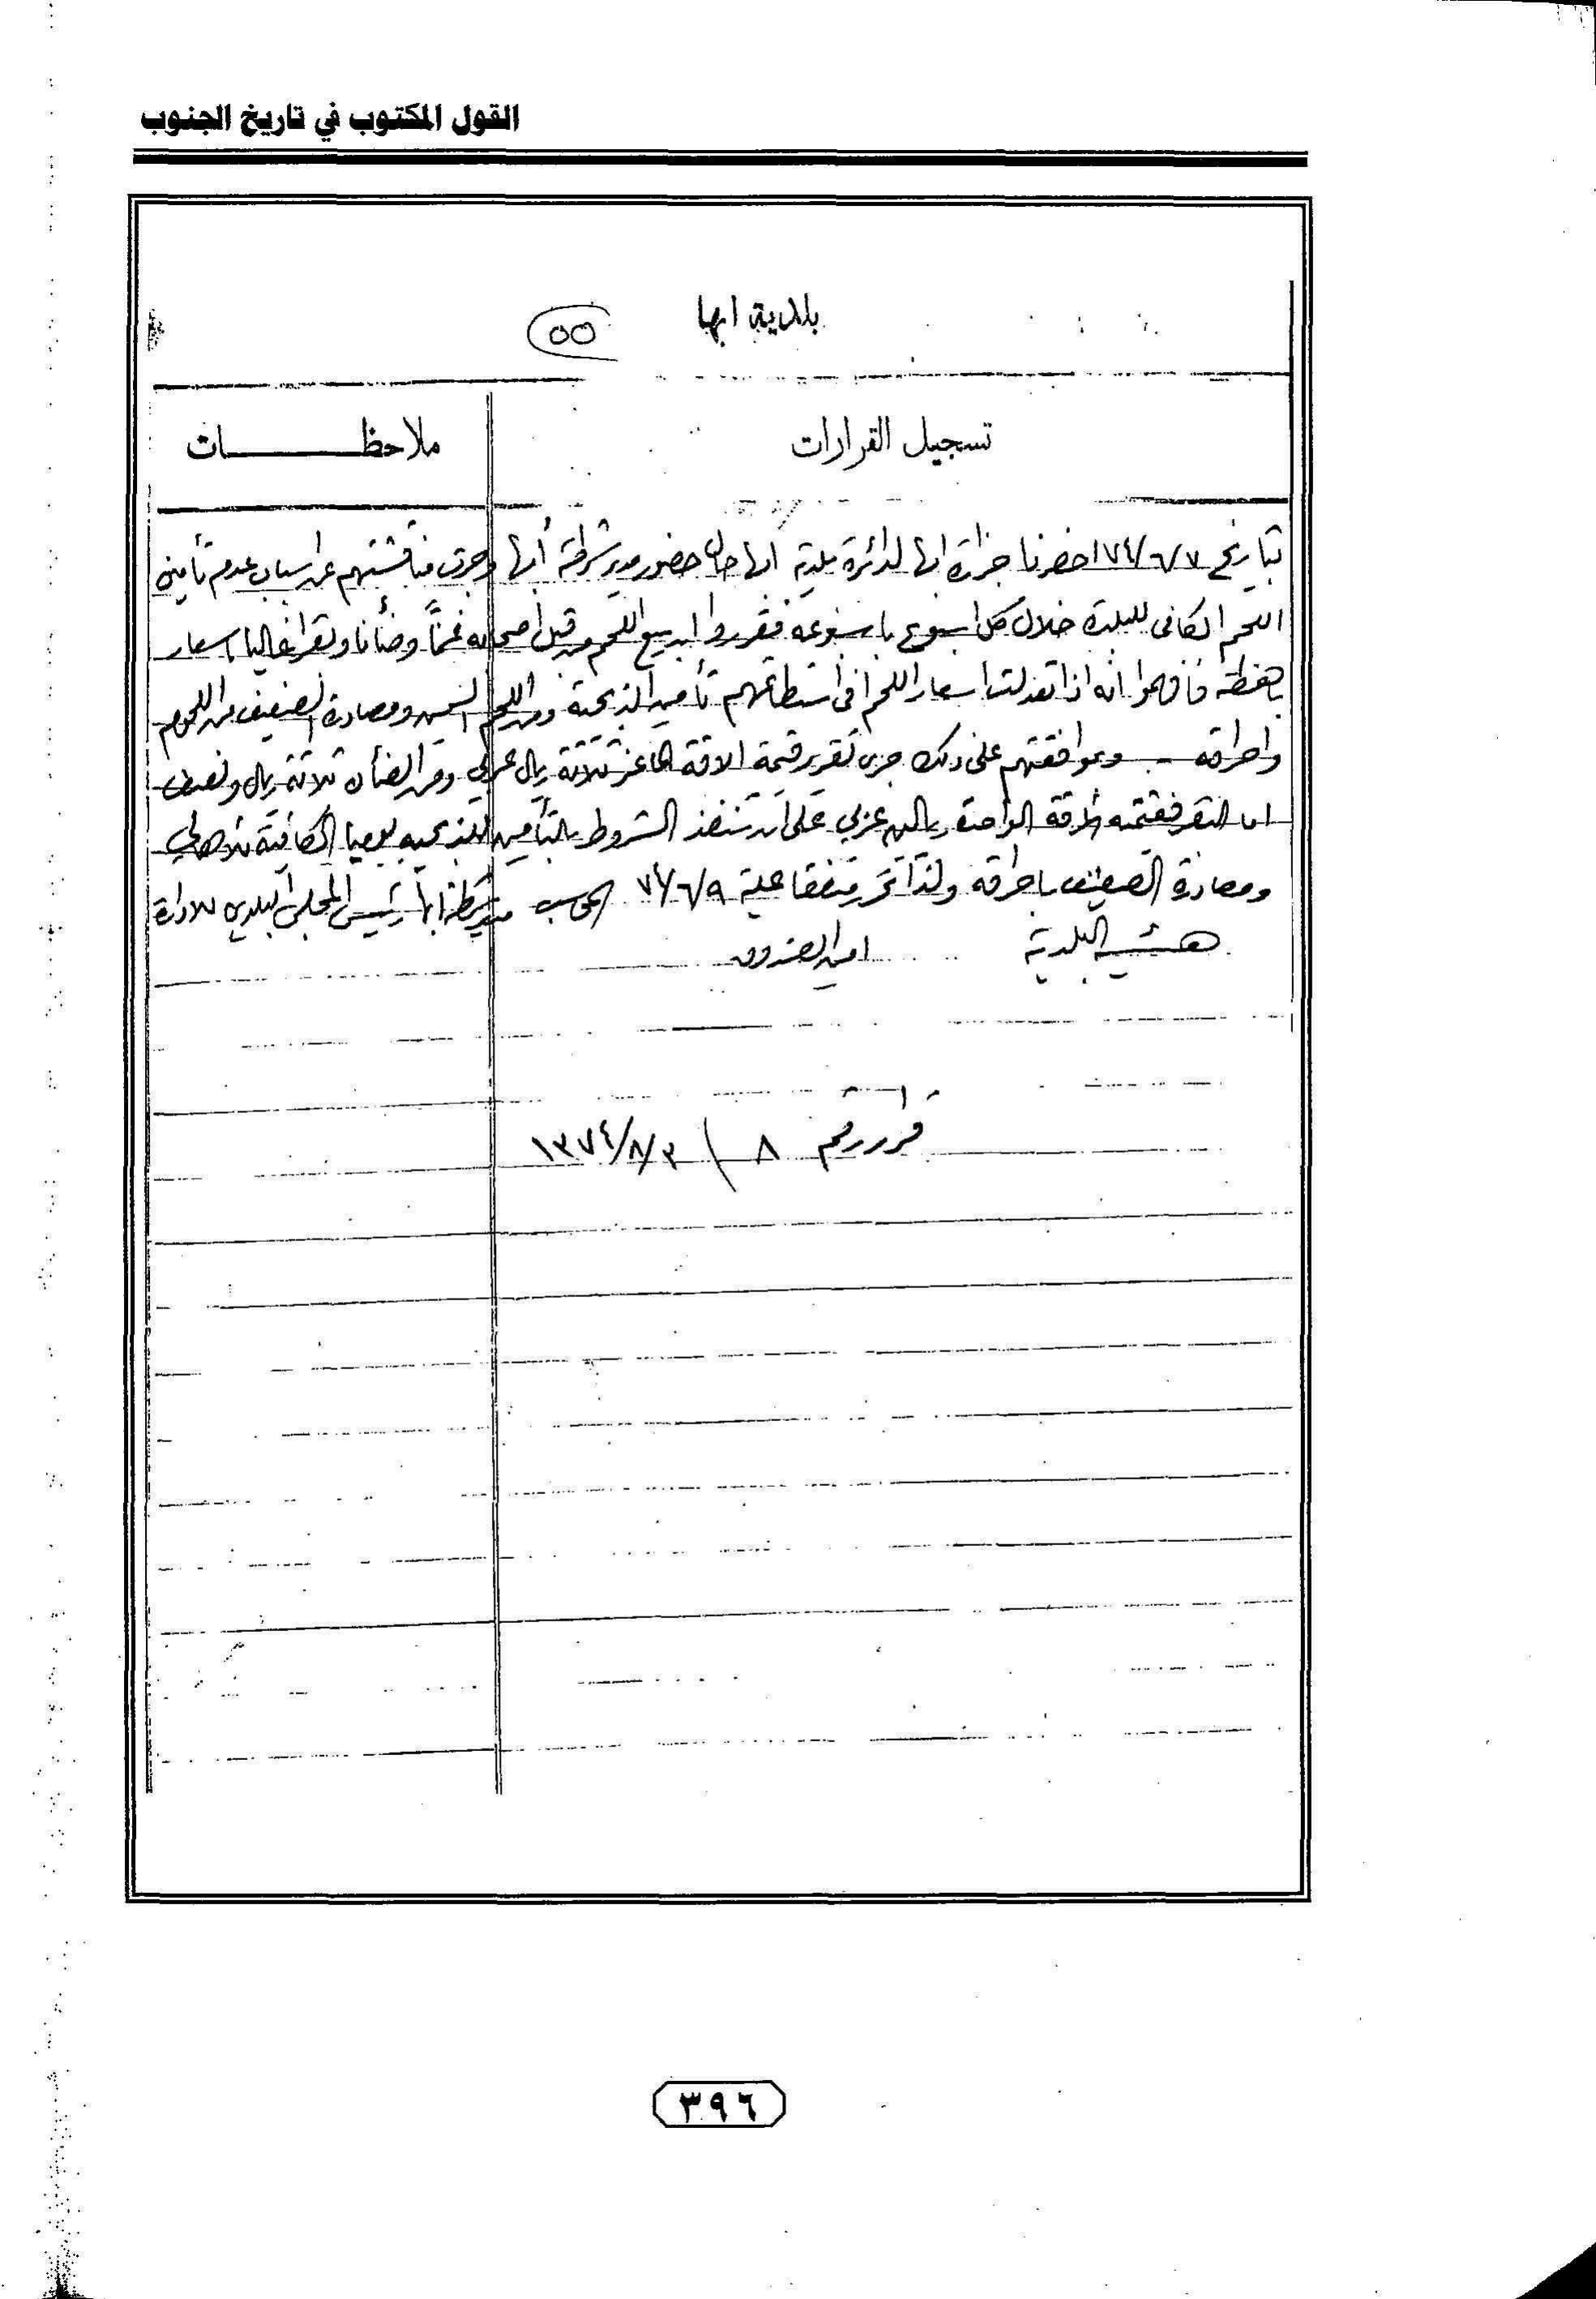 القول المكتوب في تاريخ الجنوب
بلدية ابها
٥٥
تسجيل القرارات
ملاحظـــــات
بتاريخ ٧٤/٦/٧ احضرنا جزارة ابها لدائرة بلدية ابها حال حضور مدير شرطة أبها وجرت مناقشتهم عن اسباب عدم تأمين
اللحم الكافي للبلدة خلال كل اسبوع باسبوعه فقرروا ان بيع اللحم من قبل اصحابه غنماً وضأنا وبقر غاليا باسعار
باهظة فافهموا انه اذا تعدلت اسعار اللحم في أستطاعتهم تأمين الذبيحة ومن اللحم السمين ومصادرة الضعيف من اللحوم
واحراقه وبموافقتهم على ذلك جرى تقرير قيمة الاقة الماعز ثلاثة ريال عربي ومن الضأن ثلاثة ريال ونصف
اما البقر فقيمة الاقة الواحدة ريالين عربي على ان تنفذ الشروط بالتأمين للذبحيه يوميا الكافية للاهالي
ومصادرة الضعيف باحراقه ولذا تحرر متفقا عليه ٧٤/٦/٩ المحاسب مدير شرطة ابها رئيس المجلس البلدي للادارة
هيئة البلدية امين الصندوق
قرار رقم ٨ \ ١٣٧٤/٨/٣
٣٩٦